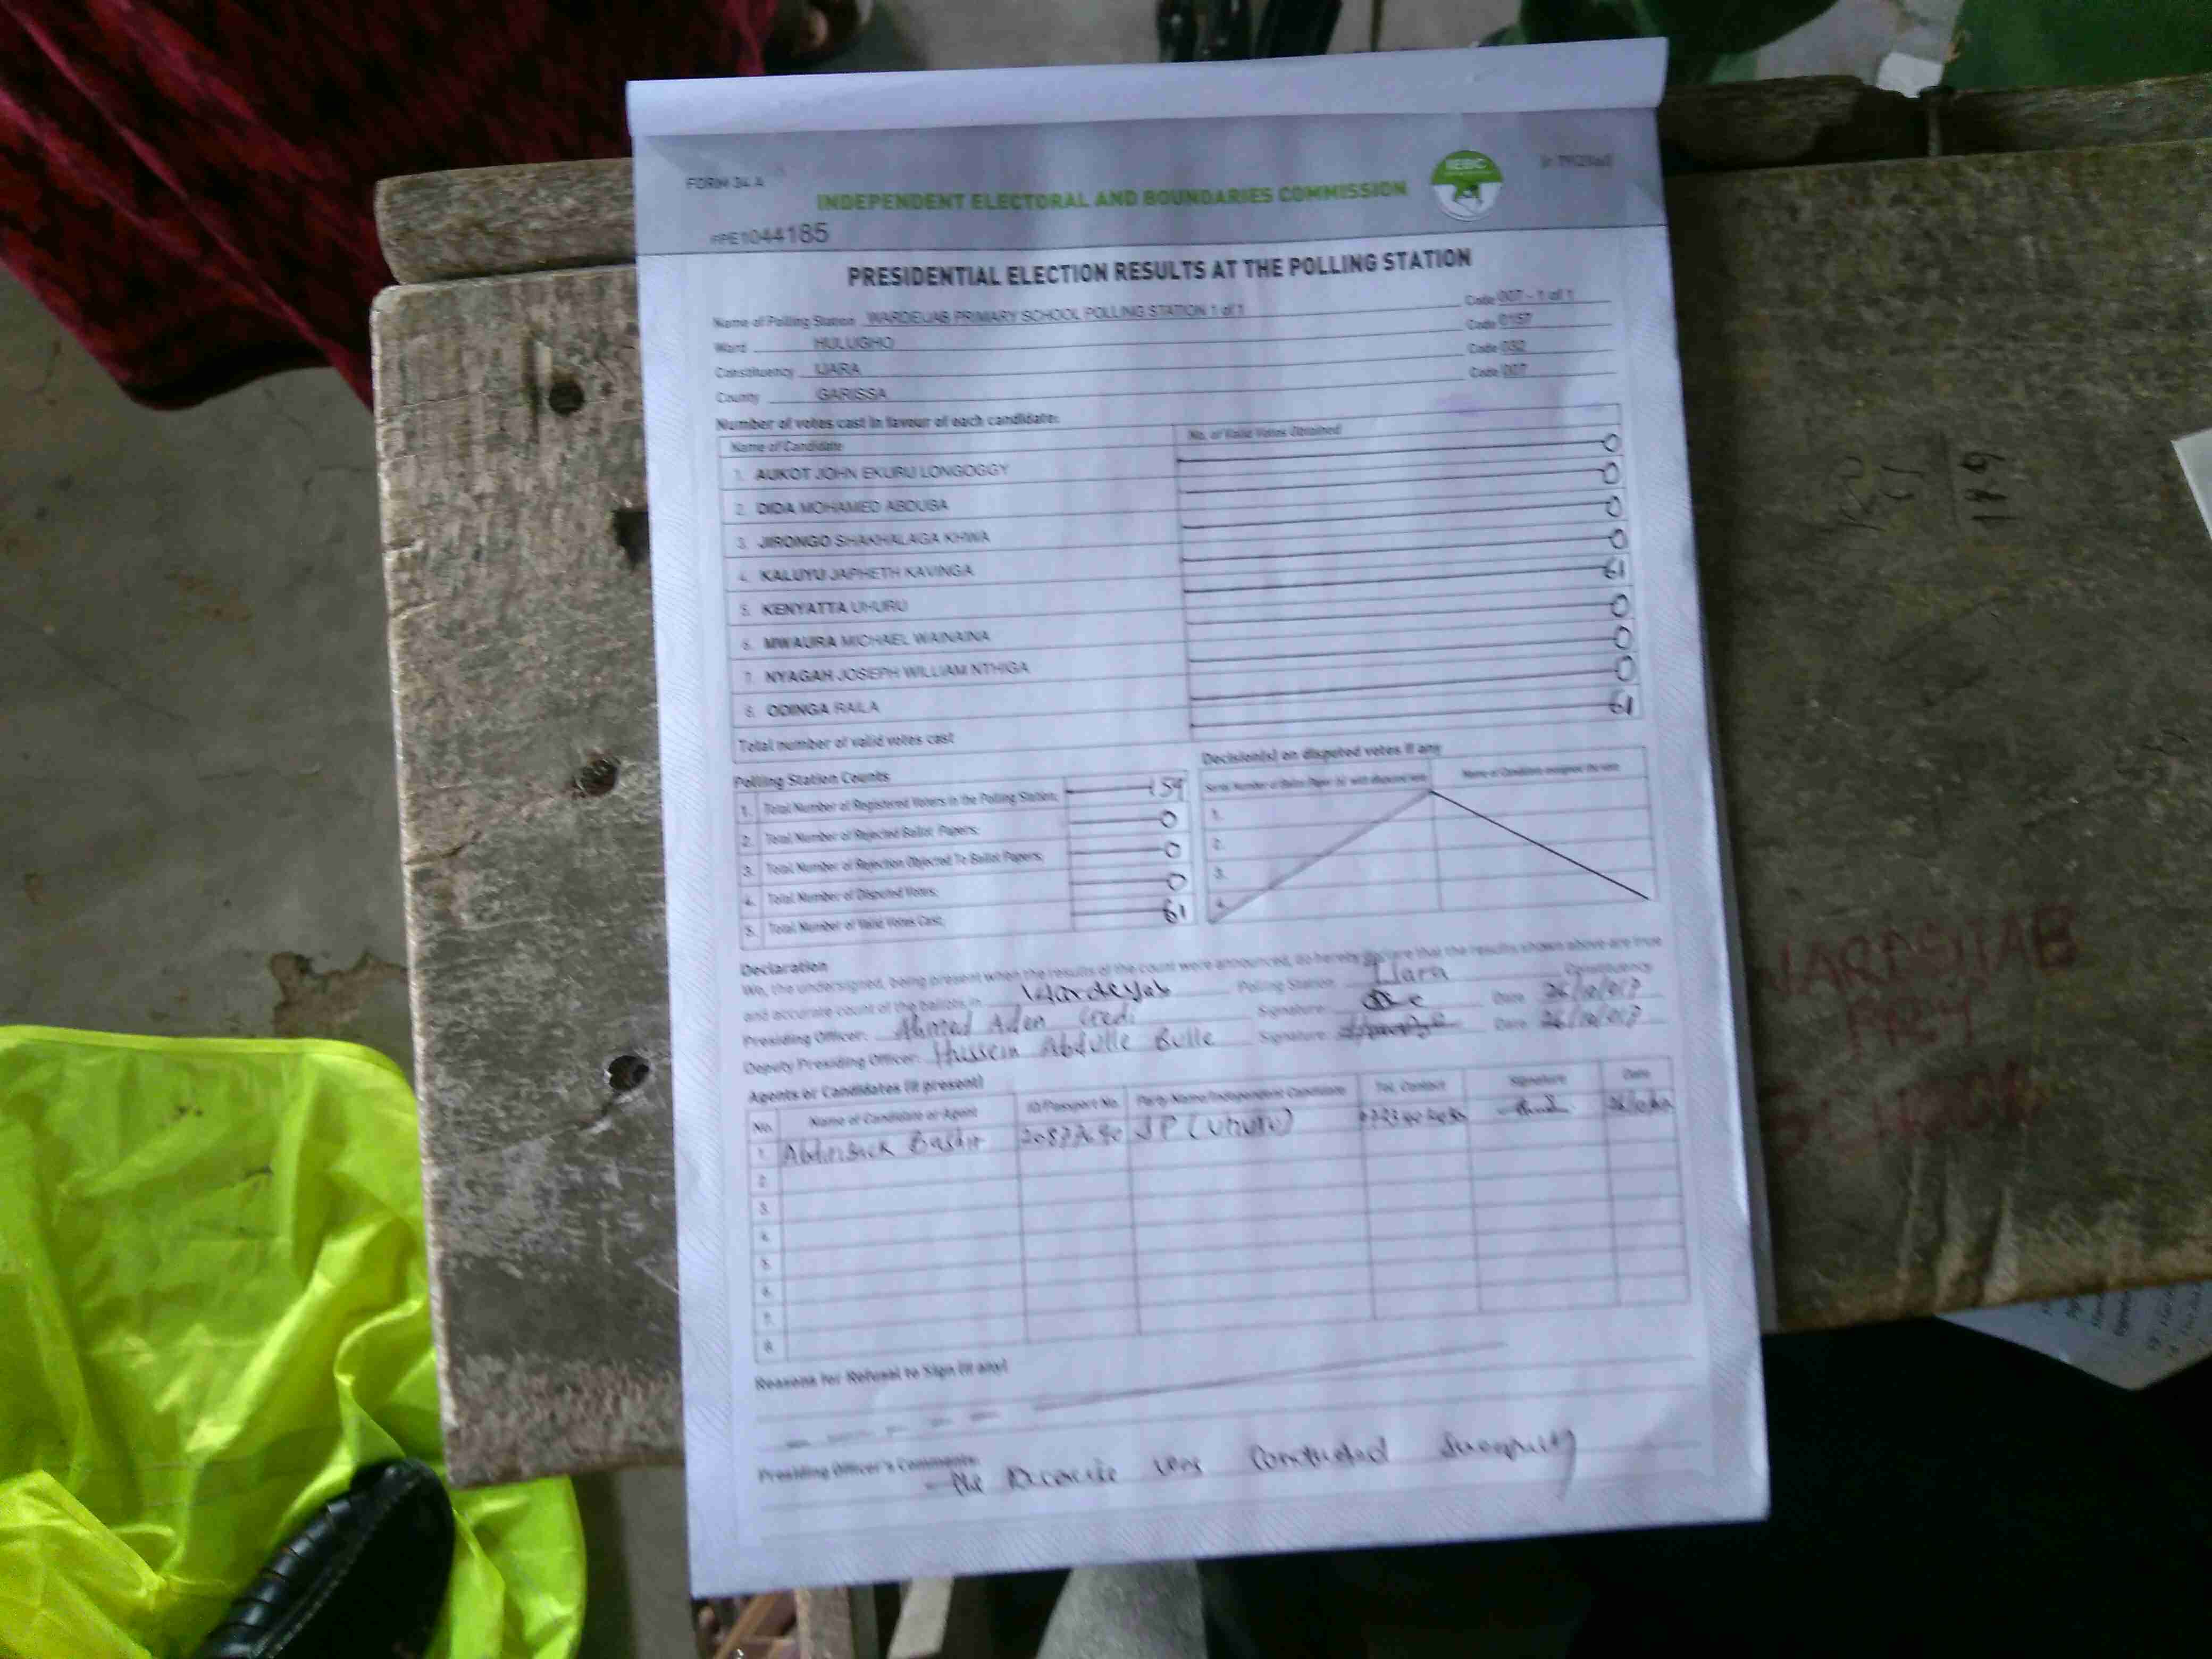 FORM 34 A
IEBC
INDEPENDENT ELECTORAL AND BOUNDARIES COMMISSION
PPE1044185
PRESIDENTIAL ELECTION RESULTS AT THE POLLING STATION
Name of Polling Station WARDEIJAB PRIMARY SCHOOL POLLING STATION 1 of 1 Code 007 - 1 of 1
Ward HULUGHO Code 0157
Constituency IJARA Code 032
County GARISSA Code 007
Number of votes cast in favour of each candidate:
Name of Candidate No. of Valid Votes Obtained
1. AUKOT JOHN EKURU LONGOGGY 0
2. DIDA MOHAMED ABDUBA 0
3. JIRONGO SHAKHALAGA KHWA 0
4. KALUYU JAPHETH KAVINGA 0
5. KENYATTA UHURU 61
6. MWAURA MICHAEL WAINAINA 0
7. NYAGAH JOSEPH WILLIAM NTHIGA 0
8. ODINGA RAILA 0
Total number of valid votes cast 61
Polling Station Counts
1. Total Number of Registered Voters in the Polling Station; 159
2. Total Number of Rejected Ballot Papers; 0
3. Total Number of Rejection Objected To Ballot Papers; 0
4. Total Number of Disputed Votes; 0
5. Total Number of Valid Votes Cast; 61
Decision(s) on disputed votes if any
Serial Number of Ballot Paper (s) with disputed vote Name of Candidate assigned the vote
1.
2.
3.
4.
Declaration
We, the undersigned, being present when the results of the count were announced, do hereby declare that the results shown above are true
and accurate count of the ballots in Wardeyab Polling Station Ijara Constituency
Presiding Officer: Ahmed Aden Signature: Date 26/10/017
Deputy Presiding Officer: Hussein Abdulle Bulle Signature: Date 26/10/017
Agents or Candidates (if present)
No. Name of Candidate or Agent ID/Passport No. Party Name/Independent Candidate Tel. Contact Signature Date
1. Bashir JP (Uhuru)
2.
3.
4.
5.
6.
7.
8.
Reasons for Refusal to Sign (if any)
Presiding Officer's Comments:
the was Conducted
189
PRY